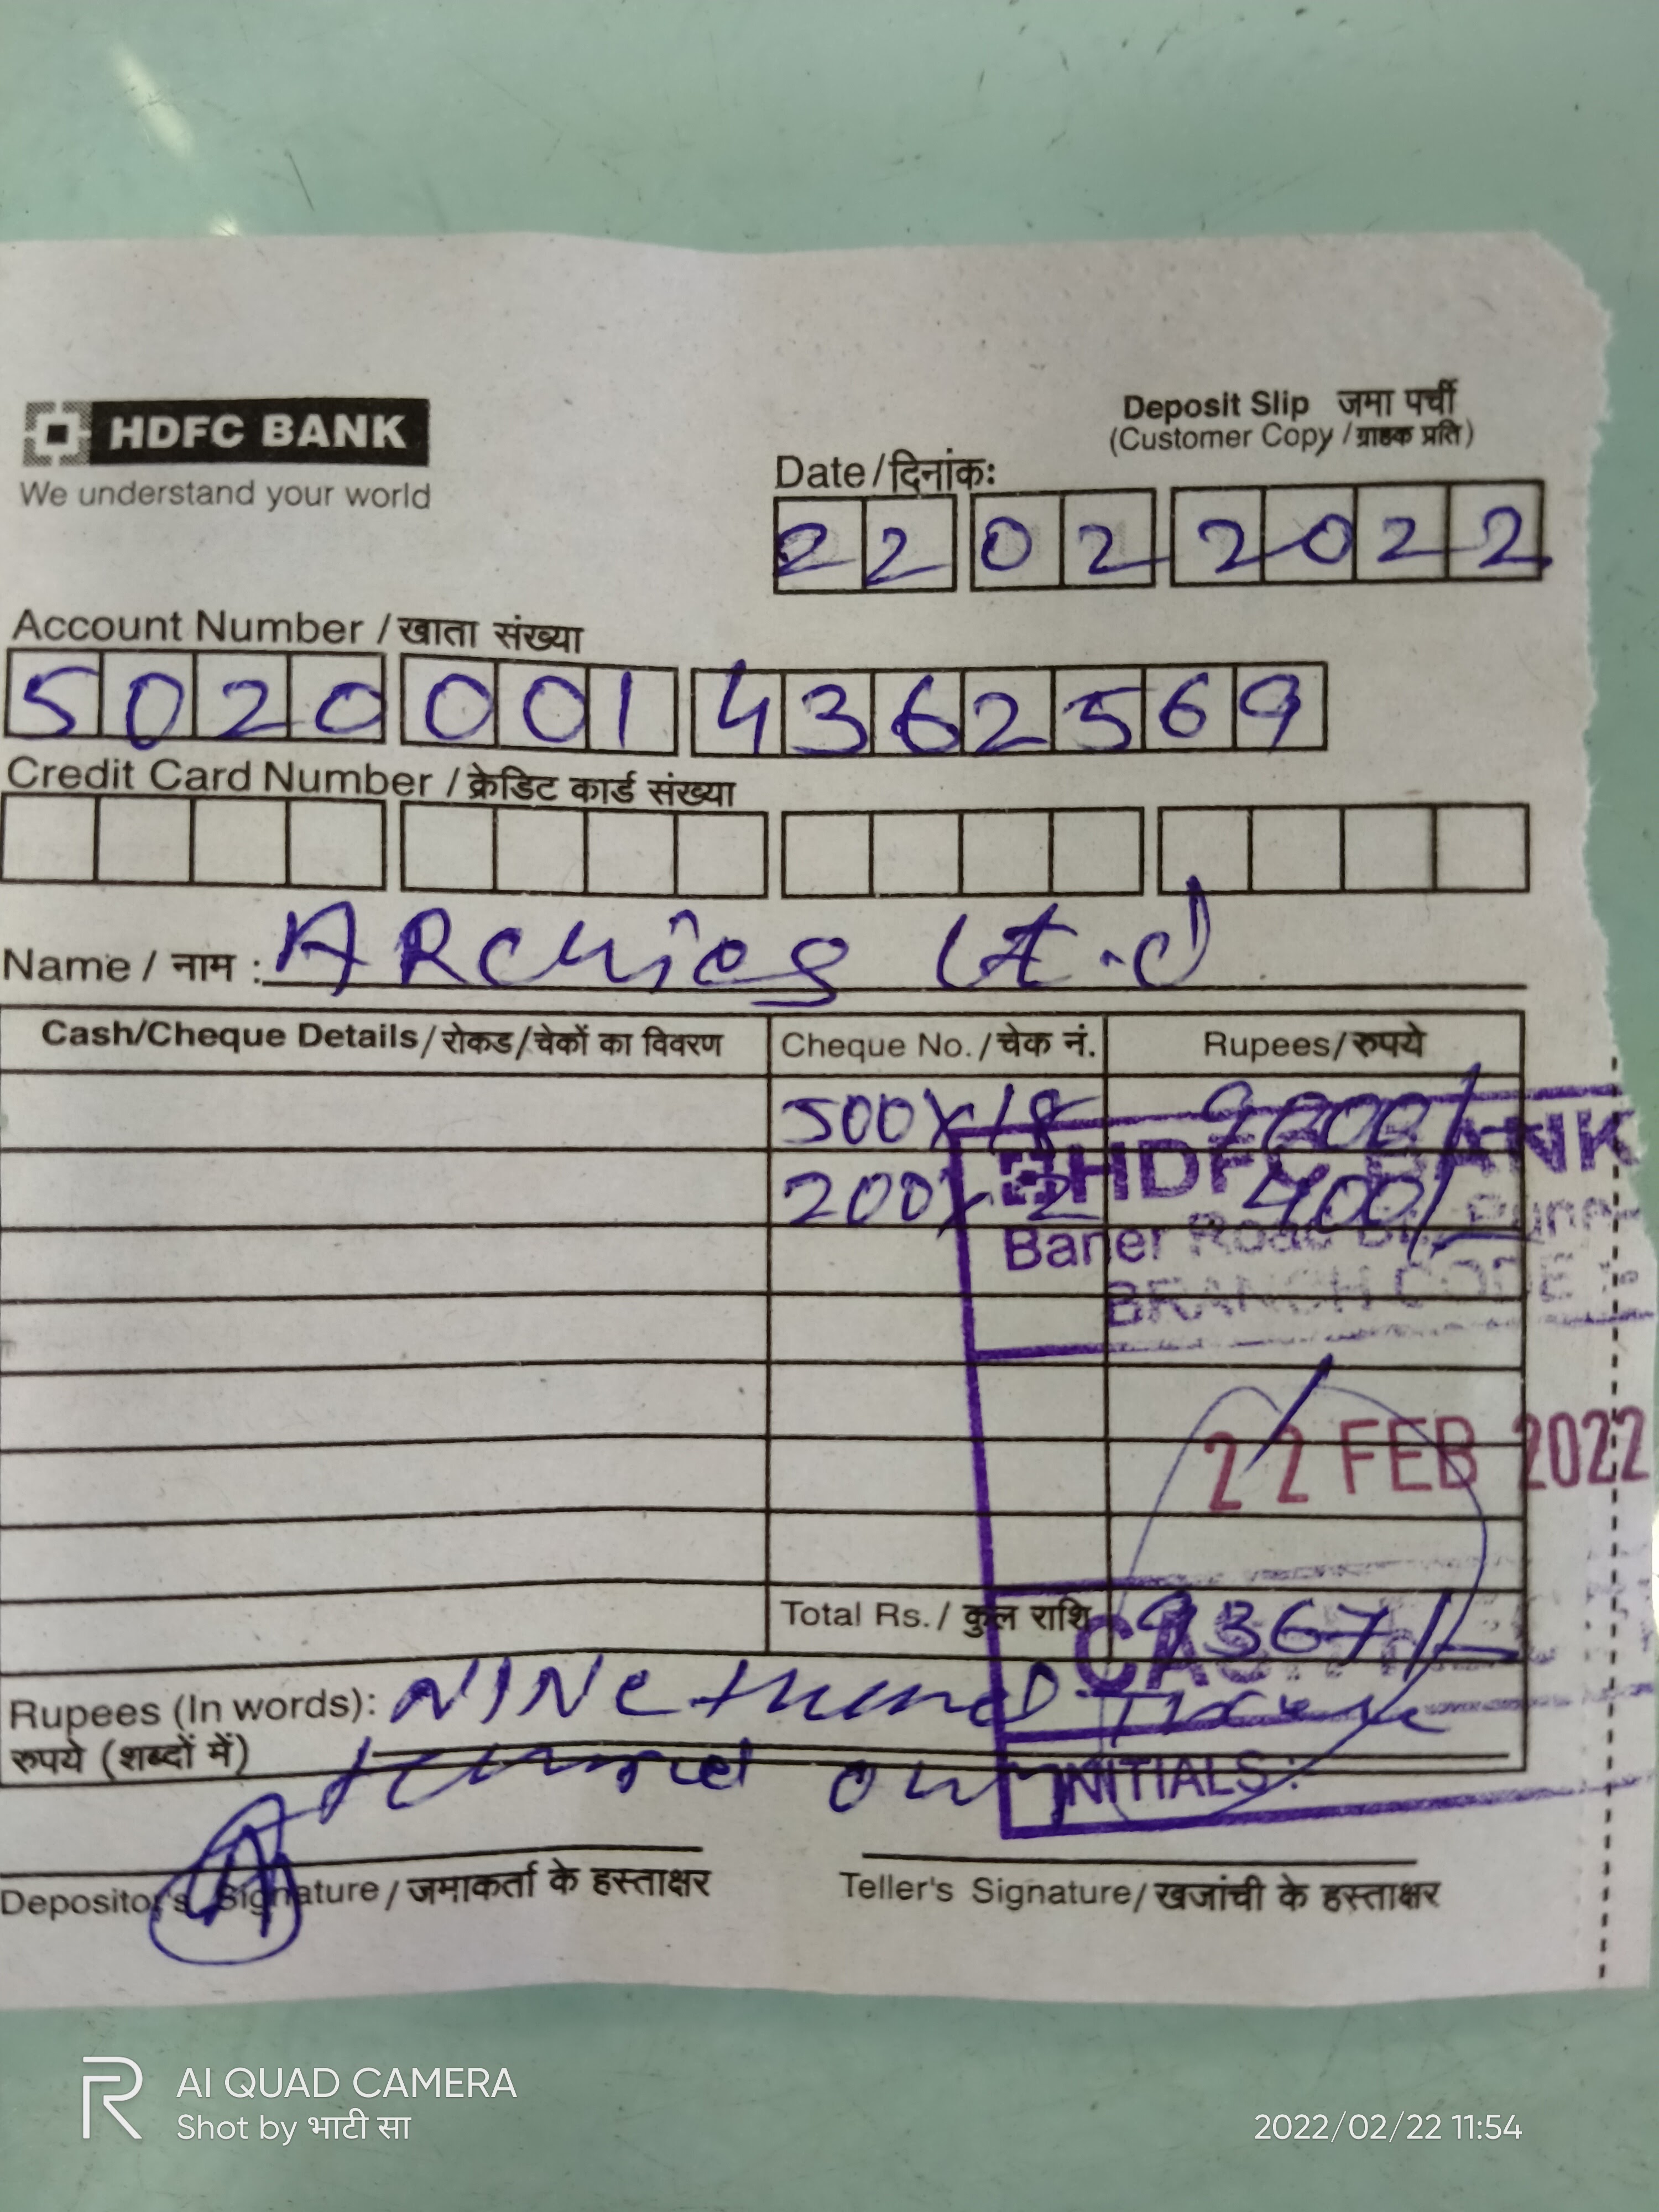 HDFC BANK
We understand your world
Deposit Slip जमा पर्ची
(Customer Copy / ग्राहक प्रति)
Date / दिनांक:
22 02 2022
Account Number / खाता संख्या
5020 001 4362569
Credit Card Number / क्रेडिट कार्ड संख्या
Name / नाम : ARchies Lt.d
Cash/Cheque Details / रोकड / चेकों का विवरण Cheque No. / चेक नं. Rupees / रुपये
500 x 18 9000/-
200 x 2 400/-
HDFC BANK
Baner Road
BRANCH CODE
22 FEB 2022
Total Rs. / कुल राशि 9367/-
Rupees (In words): NINe
रुपये (शब्दों में)
INITIALS:
Depositor's Signature / जमाकर्ता के हस्ताक्षर Teller's Signature / खजांची के हस्ताक्षर
R AI QUAD CAMERA
Shot by भाटी सा
2022/02/22 11:54